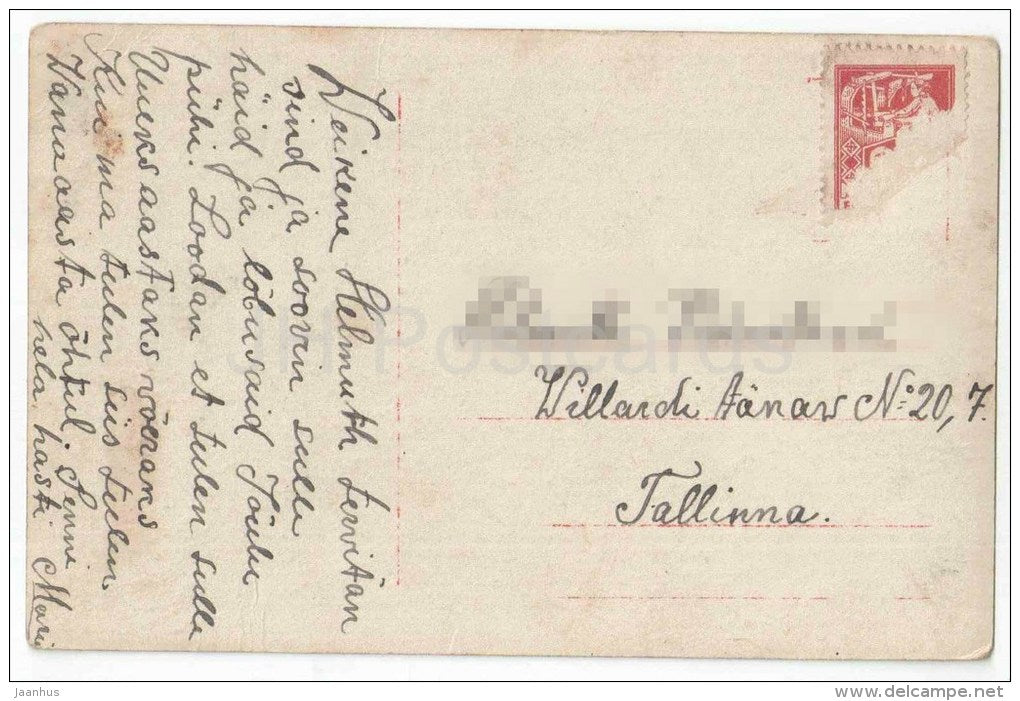 Weikene Helmuth tervitan
sind ja soovin sulle
häid ja lõbusaid Jõulu
pühi. Loodan et tulen sulle
Uueks aastaks võerans
Kui ma tulen siis tulen
Wana aasta õhtul. Senni
hela hasti Mari
Willardi tänaw No 20, 7.
Tallinna.
SH Postcards
jaanhus
www.delcampe.net